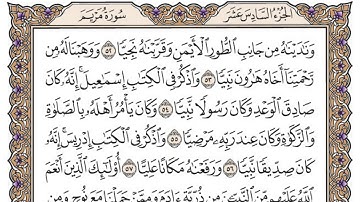 الجزء السادس عشر
سورة مريم
وَنَٰدَيْنَٰهُ مِن جَانِبِ ٱلطُّورِ ٱلْأَيْمَنِ وَقَرَّبْنَٰهُ نَجِيًّا ٥٢ وَوَهَبْنَا لَهُۥ مِن
رَّحْمَتِنَآ أَخَاهُ هَٰرُونَ نَبِيًّا ٥٣ وَٱذْكُرْ فِى ٱلْكِتَٰبِ إِسْمَٰعِيلَ ۚ إِنَّهُۥ كَانَ
صَادِقَ ٱلْوَعْدِ وَكَانَ رَسُولًا نَّبِيًّا ٥٤ وَكَانَ يَأْمُرُ أَهْلَهُۥ بِٱلصَّلَوٰةِ
وَٱلزَّكَوٰةِ وَكَانَ عِندَ رَبِّهِۦ مَرْضِيًّا ٥٥ وَٱذْكُرْ فِى ٱلْكِتَٰبِ إِدْرِيسَ ۚ إِنَّهُۥ
كَانَ صِدِّيقًا نَّبِيًّا ٥٦ وَرَفَعْنَٰهُ مَكَانًا عَلِيًّا ٥٧ أُو۟لَٰٓئِكَ ٱلَّذِينَ أَنْعَمَ
ٱللَّهُ عَلَيْهِم مِّنَ ٱلنَّبِيِّـۧنَ مِن ذُرِّيَّةِ ءَادَمَ وَمِمَّنْ حَمَلْنَا مَعَ نُوحٍ وَمِن